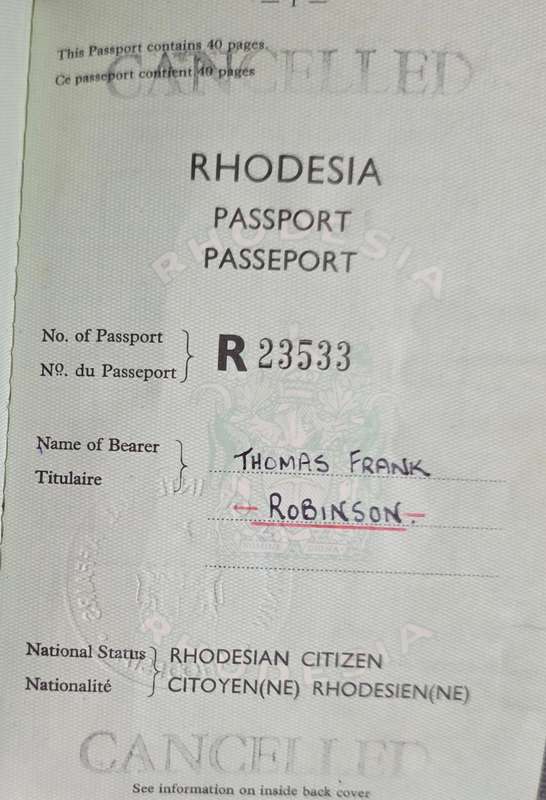 — 1 —
This Passport contains 40 pages.
Ce passeport contient 40 pages
CANCELLED
RHODESIA
PASSPORT
PASSEPORT
RHODESIA
No. of Passport
Nº. du Passeport
R 23533
Name of Bearer
Titulaire
THOMAS FRANK
ROBINSON
RHODESIA
National Status
Nationalité
RHODESIAN CITIZEN
CITOYEN(NE) RHODESIEN(NE)
CANCELLED
See information on inside back cover